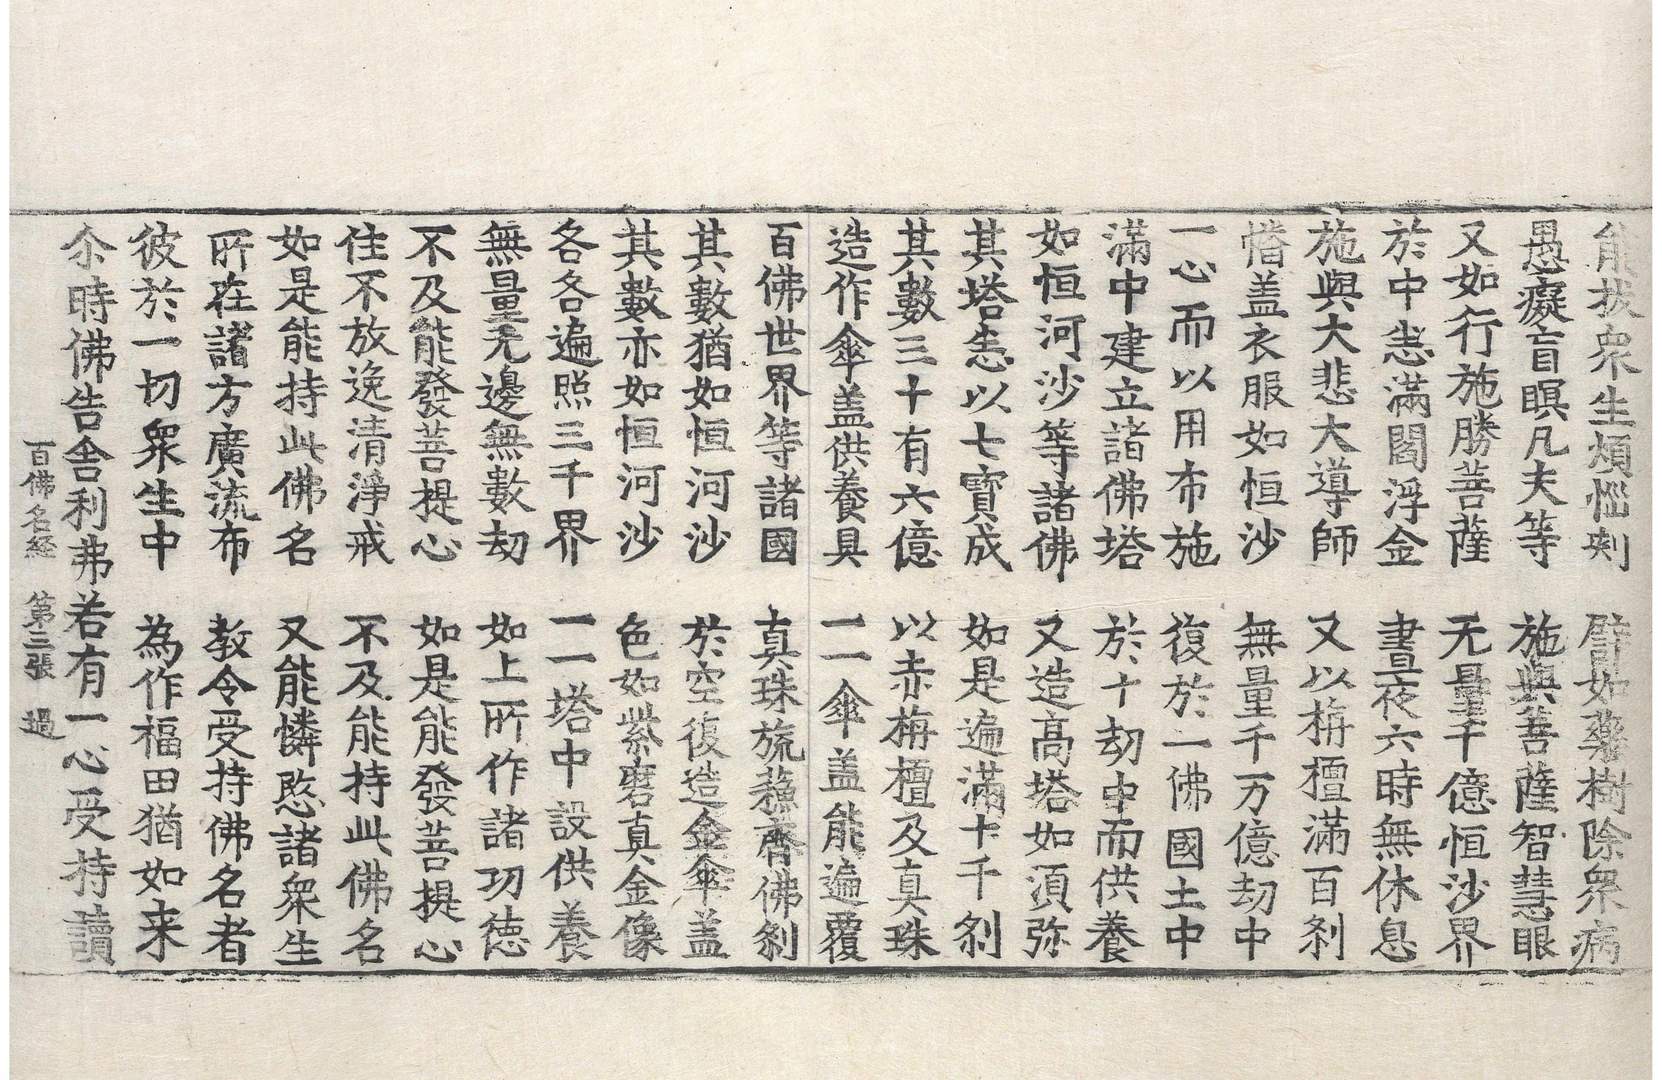 能拔衆生煩惱刺　譬如藥樹除衆病
愚癡盲瞑凡夫等　施與菩薩智慧眼
又如行施勝菩薩　无量千億恒沙界
於中悉滿閻浮金　晝夜六時無休息
施與大悲大導師　又以栴檀滿百刹
幡盖衣服如恒沙　無量千万億劫中
一心而以用布施　復於一佛國土中
滿中建立諸佛塔　於十劫中而供養
如恒河沙等諸佛　又造高塔如湏弥
其塔悉以七寶成　如是遍滿十千刹
其數三十有六億　以赤栴檀及真珠
造作傘盖供養具　一一傘盖能遍覆
百佛世界等諸國　真珠旒蘓齊佛刹
其數猶如恒河沙　於空復造金傘盖
其數亦如恒河沙　色如紫磨真金像
各各遍照三千界　一一塔中設供養
無量无邊無數劫　如上所作諸功徳
不及能發菩提心　如是能發菩提心
住不放逸清淨戒　不及能持此佛名
如是能持此佛名　又能憐愍諸衆生
所在諸方廣流布　教令受持佛名者
彼於一切衆生中　為作福田猶如来
尒時佛告舎利弗若有一心受持讀
百佛名経　第三張　過